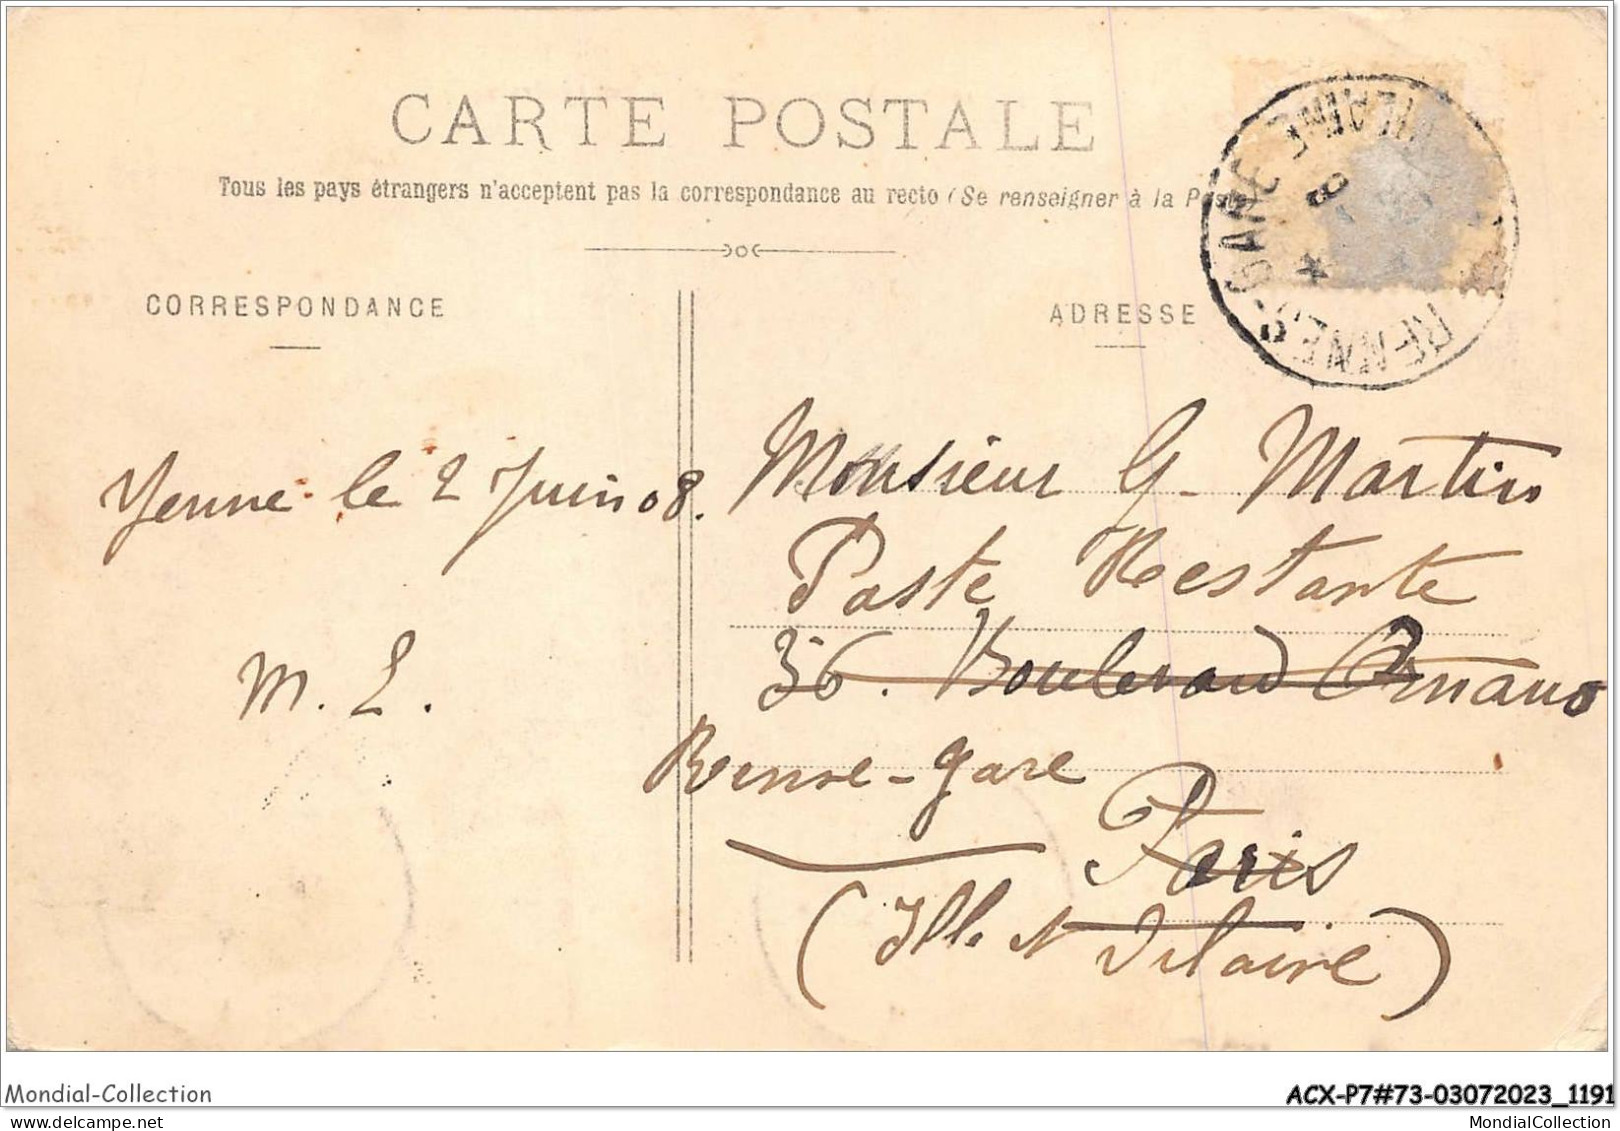 CARTE POSTALE
Tous les pays étrangers n'acceptent pas la correspondance au recto (Se renseigner à la Poste
CORRESPONDANCE
ADRESSE
RENNES-GARE
VILAINE
Yenne le 2 Juin 08.
M. L.
Monsieur G. Martin
Poste Restante
36. Boulevard Ornano
Renne-gare
Paris
(Ille et Vilaine)
Mondial-Collection
ACX-P7#73-03072023_1191
MondialCollection